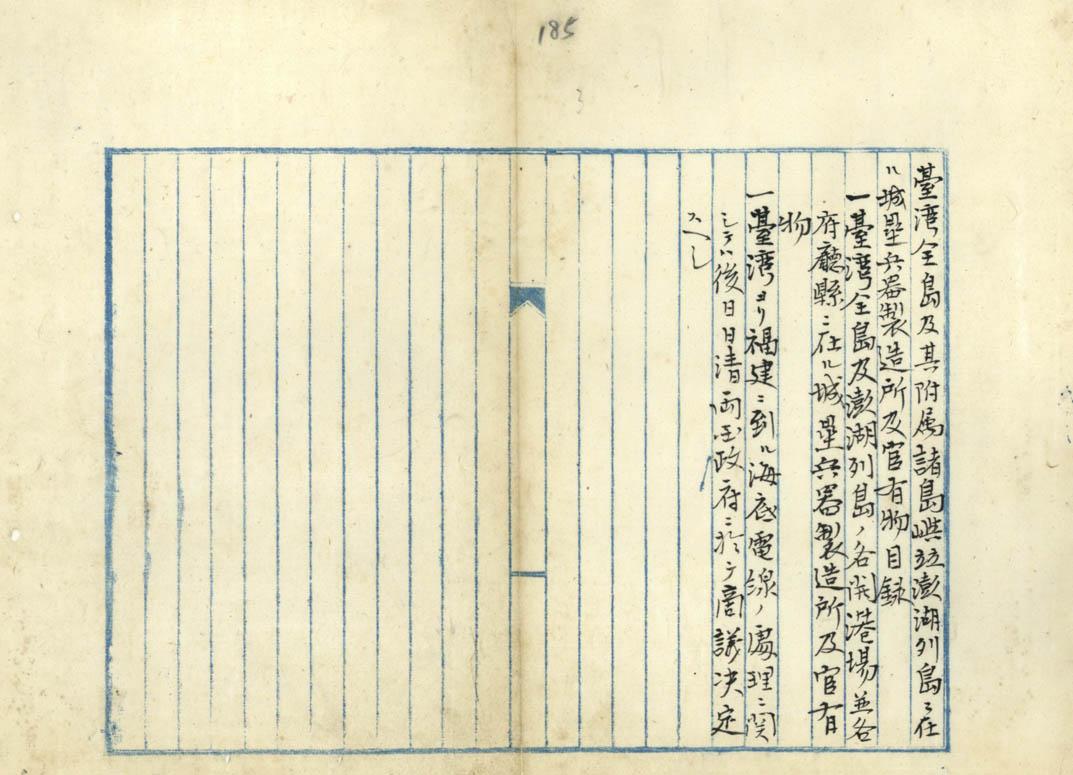 185
3
臺湾全島及其附属諸島嶼並澎湖列島ニ在
ル城壘兵器製造所及官有物目録
一臺湾全島及澎湖列島ノ各開港場並各
府廳縣ニ在ル城壘兵器製造所及官有
物
一臺湾ヨリ福建ニ到ル海底電線ノ處理ニ関
シテハ後日日清両国政府ニ於テ商議決定
スヘシ